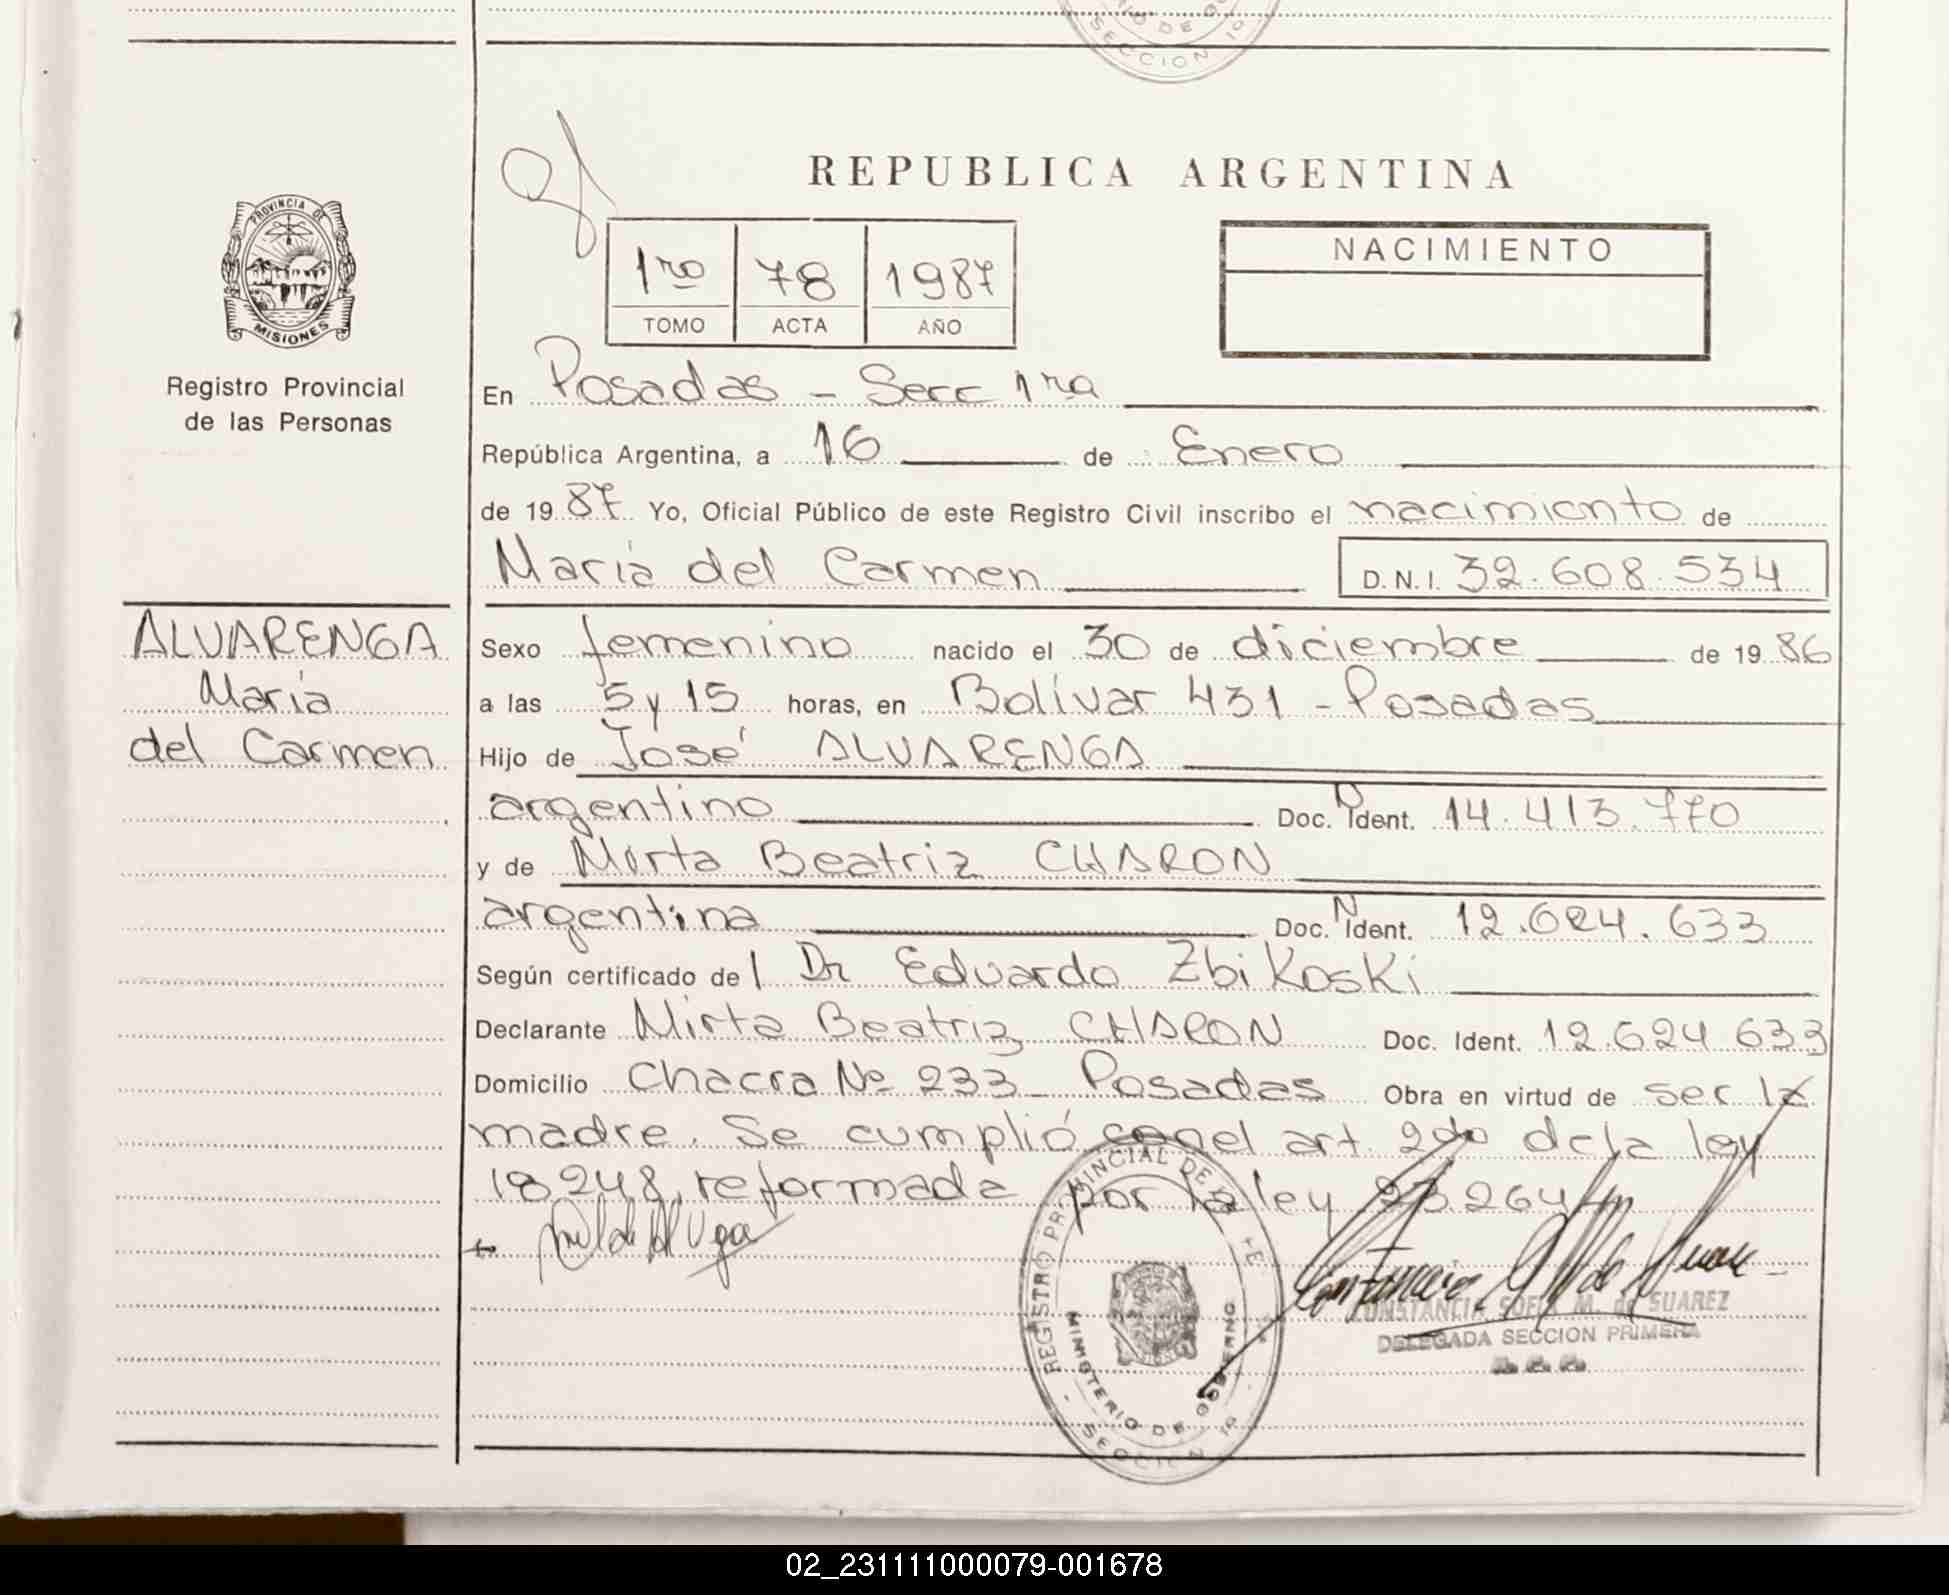 MINISTERIO DE GOBIERNO
SECCION 1a
REPUBLICA ARGENTINA
PROVINCIA DE
MISIONES
Registro Provincial
de las Personas
1ro 78 1987
TOMO ACTA AÑO
NACIMIENTO
En Posadas - Secc 1ra
República Argentina, a 16 de Enero
de 1987 Yo, Oficial Público de este Registro Civil inscribo el nacimiento de
María del Carmen D.N.I. 32.608.534
ALVARENGA
María
del Carmen
Sexo femenino nacido el 30 de diciembre de 1986
a las 5 y 15 horas, en Bolívar 431 - Posadas
Hijo de José ALVARENGA
argentino Doc. Ident. 14.413.770
y de Mirta Beatriz CHARON
argentina Doc. N Ident. 12.624.633
Según certificado de l Dr Eduardo Zbikoski
Declarante Mirta Beatriz CHARON Doc. Ident. 12.624.633
Domicilio Chacra Nº 233 Posadas Obra en virtud de ser la
madre. Se cumplió con el art. 2do de la ley
18248, reformada por la ley 23.264
REGISTRO PROVINCIAL DE
MINISTERIO DE GOBIERNO
SECCION 1a
CONSTANCIA SOFIA M. de SUAREZ
DELEGADA SECCION PRIMERA